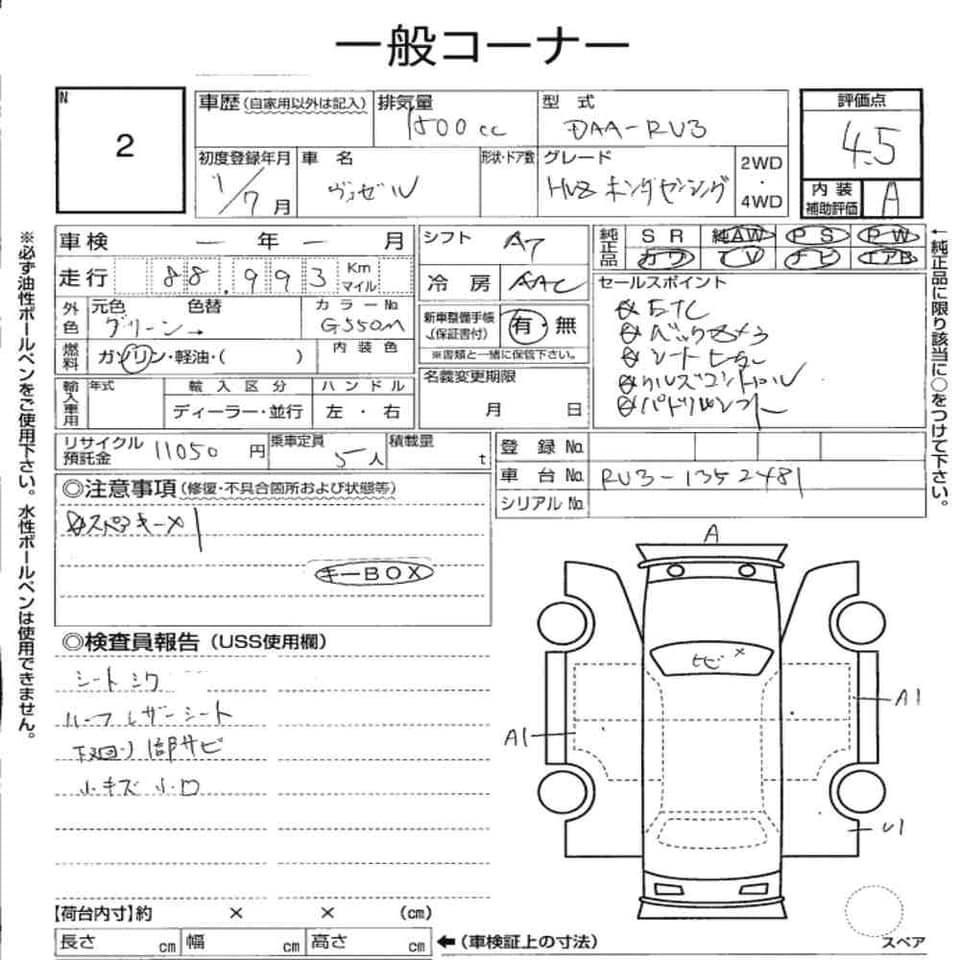 一般コーナー
N
2
車歴(自家用以外は記入)
排気量
1500cc
型式
DAA-RU3
評価点
4.5
初度登録年月
1/7月
車名
ヴェゼル
形状・ドア数
グレード
HVZ ホンダセンシング
2WD
・
4WD
内装
補助評価
A
車検 ー年ー月
シフト
AT
純正品
SR 純AW PS PW
カワ TV ナビ エアB
走行 88,993 Km マイル
冷房
AAC
セールスポイント
ETC
バックカメラ
シートヒーター
クルーズコントロール
パドルシフト
外色
元色 色替
グリーン→
カラーNo.
G550M
新車整備手帳
(保証書付)
有・無
※書類と一緒に保管下さい。
燃料
ガソリン・軽油・( )
内装色
名義変更期限
月 日
輸入車用
年式
輸入区分
ディーラー・並行
ハンドル
左・右
リサイクル
預託金
11050円
乗車定員
5人
積載量
t
登録No.
車台No.
RU3-1352481
シリアルNo.
◎注意事項(修復・不具合箇所および状態等)
スペアキーメ1
キーBOX
◎検査員報告(USS使用欄)
シートシワ
ハーフレザーシート
下廻り1部サビ
小キズ小凹
A
ヒビ×
A1
A1
U1
【荷台内寸】約 × × (cm)
長さ cm 幅 cm 高さ cm
←(車検証上の寸法)
スペア
※必ず油性ボールペンをご使用下さい。水性ボールペンは使用できません。
←純正品に限り該当に○をつけて下さい。